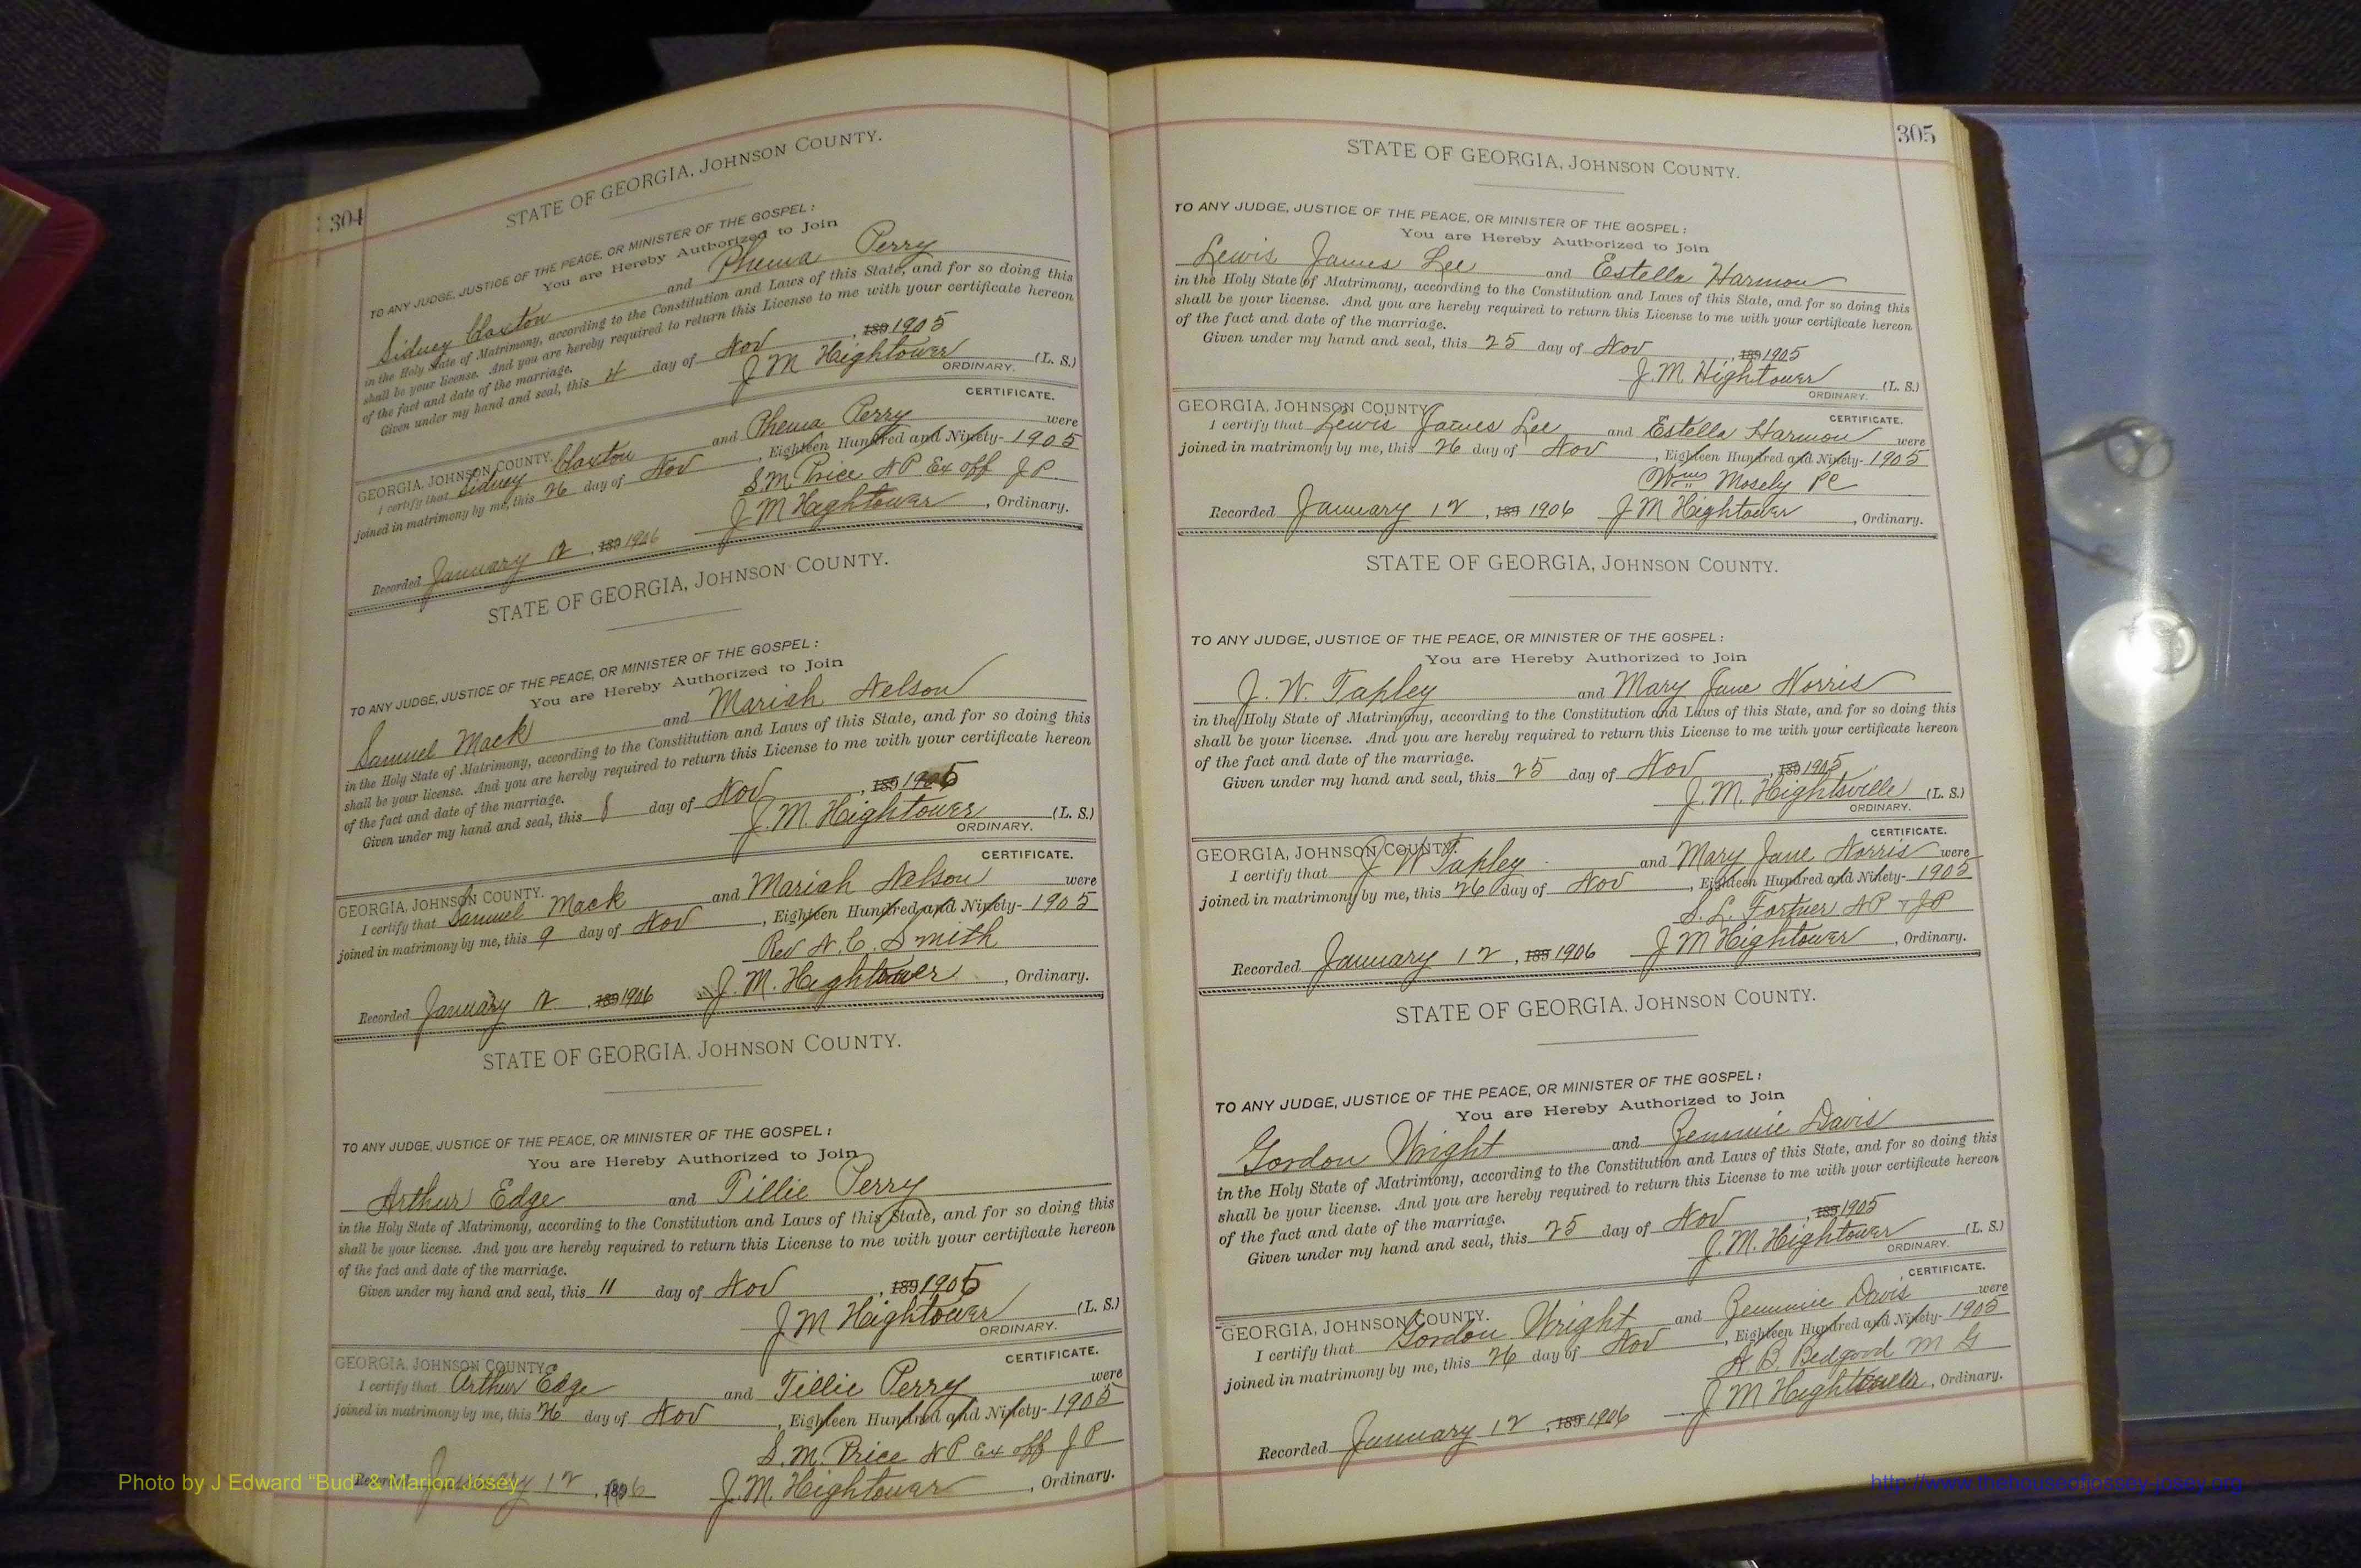 304
STATE OF GEORGIA, JOHNSON COUNTY.
TO ANY JUDGE, JUSTICE OF THE PEACE, OR MINISTER OF THE GOSPEL:
You are Hereby Authorized to Join
Sidney Claxton and Phema Perry
in the Holy State of Matrimony, according to the Constitution and Laws of this State, and for so doing this
shall be your license. And you are hereby required to return this License to me with your certificate hereon
of the fact and date of the marriage.
Given under my hand and seal, this 4 day of Nov, 189 1905
J M Hightower (L. S.)
ORDINARY.
CERTIFICATE.
GEORGIA, JOHNSON COUNTY.
I certify that Sidney Claxton and Phema Perry were
joined in matrimony by me, this 26 day of Nov, Eighteen Hundred and Ninety- 1905
S M Price N P Ex off J P
Recorded January 12, 189 1906 J M Hightower, Ordinary.
STATE OF GEORGIA, JOHNSON COUNTY.
TO ANY JUDGE, JUSTICE OF THE PEACE, OR MINISTER OF THE GOSPEL:
You are Hereby Authorized to Join
Samuel Mack and Mariah Nelson
in the Holy State of Matrimony, according to the Constitution and Laws of this State, and for so doing this
shall be your license. And you are hereby required to return this License to me with your certificate hereon
of the fact and date of the marriage.
Given under my hand and seal, this 8 day of Nov, 189 1905
J. M. Hightower (L. S.)
ORDINARY.
CERTIFICATE.
GEORGIA, JOHNSON COUNTY.
I certify that Samuel Mack and Mariah Nelson were
joined in matrimony by me, this 9 day of Nov, Eighteen Hundred and Ninety- 1905
Rev N. C. Smith
Recorded January 12, 189 1906 J. M. Hightower, Ordinary.
STATE OF GEORGIA, JOHNSON COUNTY.
TO ANY JUDGE, JUSTICE OF THE PEACE, OR MINISTER OF THE GOSPEL:
You are Hereby Authorized to Join
Arthur Edge and Tillie Perry
in the Holy State of Matrimony, according to the Constitution and Laws of this State, and for so doing this
shall be your license. And you are hereby required to return this License to me with your certificate hereon
of the fact and date of the marriage.
Given under my hand and seal, this 11 day of Nov, 189 1905
J M Hightower (L. S.)
ORDINARY.
CERTIFICATE.
GEORGIA, JOHNSON COUNTY.
I certify that Arthur Edge and Tillie Perry were
joined in matrimony by me, this 26 day of Nov, Eighteen Hundred and Ninety- 1905
S. M. Price N P Ex off J P
Recorded January 12, 1906 J. M. Hightower, Ordinary.
Photo by J Edward "Bud" & Marion Josey
305
STATE OF GEORGIA, JOHNSON COUNTY.
TO ANY JUDGE, JUSTICE OF THE PEACE, OR MINISTER OF THE GOSPEL:
You are Hereby Authorized to Join
Lewis James Lee and Estella Harmon
in the Holy State of Matrimony, according to the Constitution and Laws of this State, and for so doing this
shall be your license. And you are hereby required to return this License to me with your certificate hereon
of the fact and date of the marriage.
Given under my hand and seal, this 25 day of Nov, 189 1905
J. M. Hightower (L. S.)
ORDINARY.
GEORGIA, JOHNSON COUNTY. CERTIFICATE.
I certify that Lewis James Lee and Estella Harmon were
joined in matrimony by me, this 26 day of Nov, Eighteen Hundred and Ninety- 1905
Wms Mosely PC
Recorded January 12, 189 1906 J M Hightower, Ordinary.
STATE OF GEORGIA, JOHNSON COUNTY.
TO ANY JUDGE, JUSTICE OF THE PEACE, OR MINISTER OF THE GOSPEL:
You are Hereby Authorized to Join
J. W. Tapley and Mary Jane Norris
in the Holy State of Matrimony, according to the Constitution and Laws of this State, and for so doing this
shall be your license. And you are hereby required to return this License to me with your certificate hereon
of the fact and date of the marriage.
Given under my hand and seal, this 25 day of Nov, 189 1905
J. M. Hightsville (L. S.)
ORDINARY.
CERTIFICATE.
GEORGIA, JOHNSON COUNTY.
I certify that J W Tapley and Mary Jane Norris were
joined in matrimony by me, this 26 day of Nov, Eighteen Hundred and Ninety- 1905
S. L. Fortner N P + J P
Recorded January 12, 189 1906 J M Hightower, Ordinary.
STATE OF GEORGIA, JOHNSON COUNTY.
TO ANY JUDGE, JUSTICE OF THE PEACE, OR MINISTER OF THE GOSPEL:
You are Hereby Authorized to Join
Gordon Wright and Jemmie Davis
in the Holy State of Matrimony, according to the Constitution and Laws of this State, and for so doing this
shall be your license. And you are hereby required to return this License to me with your certificate hereon
of the fact and date of the marriage.
Given under my hand and seal, this 25 day of Nov, 189 1905
J. M. Hightower (L. S.)
ORDINARY.
CERTIFICATE.
GEORGIA, JOHNSON COUNTY.
I certify that Gordon Wright and Jemmie Davis were
joined in matrimony by me, this 26 day of Nov, Eighteen Hundred and Ninety- 1905
A B. Bedgood M G
Recorded January 12, 189 1906 J M Hightower, Ordinary.
http://www.thehouseofjossey-josey.org